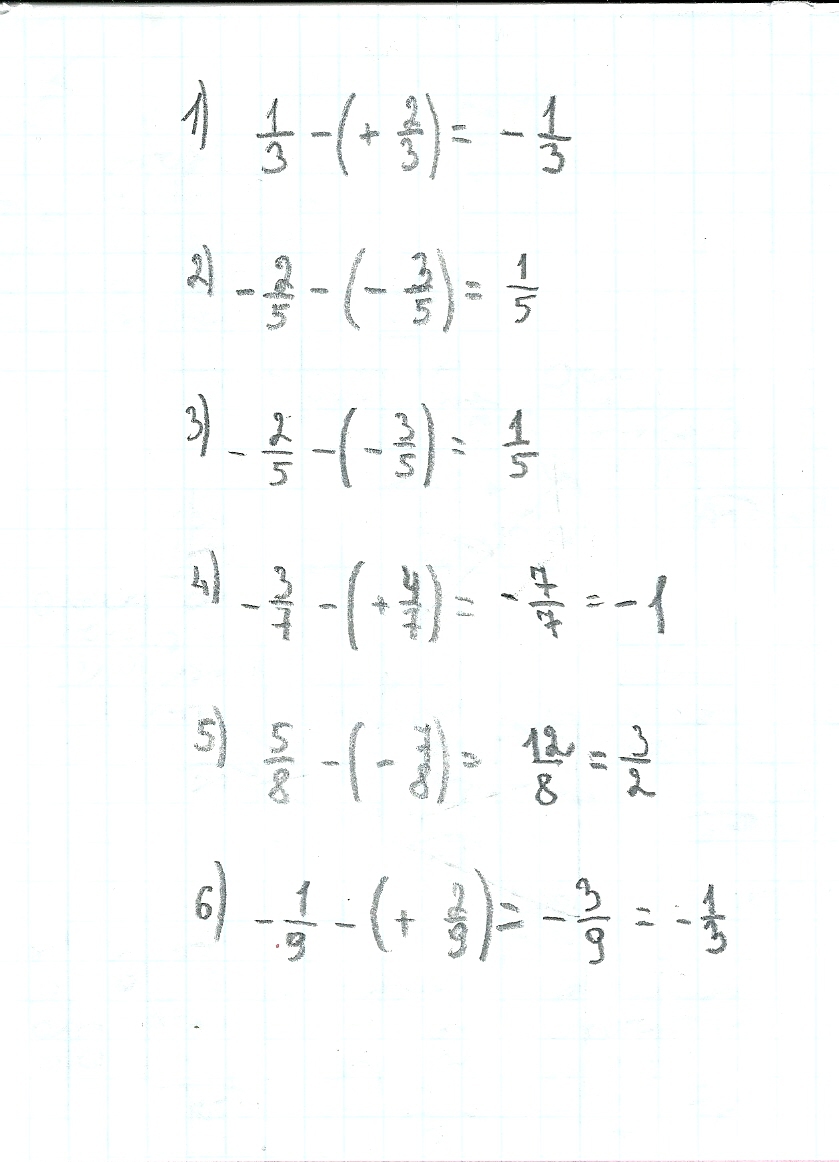 1) 1/3 - (+ 2/3) = - 1/3
2) - 2/5 - (- 3/5) = 1/5
3) - 2/5 - (- 3/5) = 1/5
4) - 3/7 - (+ 4/7) = - 7/7 = - 1
5) 5/8 - (- 7/8) = 12/8 = 3/2
6) - 1/9 - (+ 2/9) = - 3/9 = - 1/3